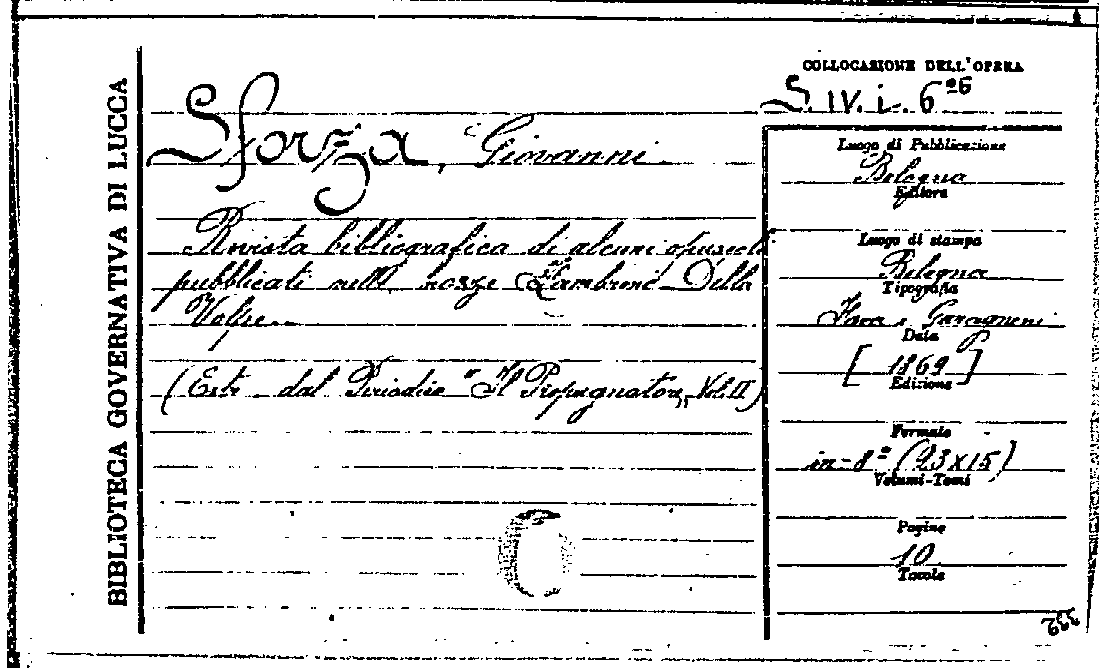 BIBLIOTECA GOVERNATIVA DI LUCCA
Sforza, Giovanni
Rivista bibliografica di alcuni opuscoli
pubblicati nelle nozze Zambrini Della
Volpe.
(Estr. dal Periodico "Il Propugnatore, Vol. II)
COLLOCAZIONE DELL'OPERA
S. IV. i. 6
Luogo di Pubblicazione
Bologna
Editore
Luogo di stampa
Bologna
Tipografia
Fava e Garagnani
Data
[1869]
Edizione
Formato
in-8º (23x15)
Volumi-Tomi
Pagine
10
Tavole